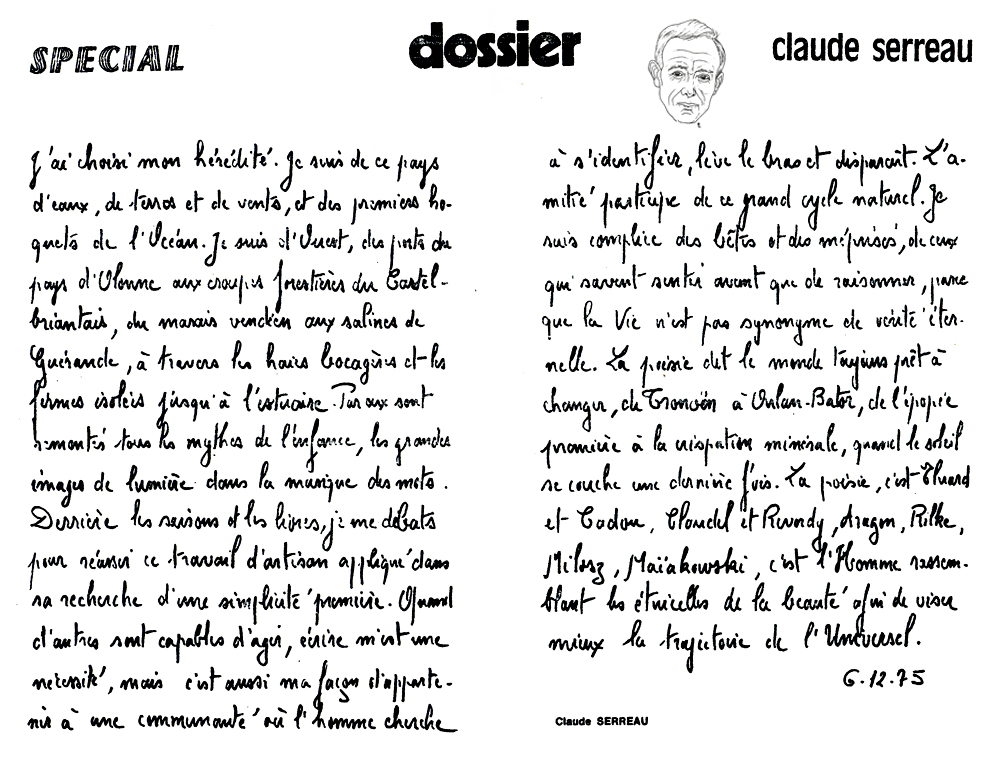 SPECIAL
dossier
claude serreau
J'ai choisi mon hérédité. Je suis de ce pays
d'eaux, de terres et de vents, et des premiers ho-
quets de l'Océan. Je suis d'Ouest, des ports du
pays d'Olonne aux croupes forestières du Castel-
briantais, du marais vendéen aux salines de
Guérande, à travers les haies bocagères et les
fermes isolées jusqu'à l'estuaire. Par eux sont
remontés tous les mythes de l'enfance, les grandes
images de lumière dans la musique des mots.
Derrière les saisons et les livres, je me débats
pour réussir ce travail d'artisan appliqué dans
sa recherche d'une simplicité première. Quand
d'autres sont capables d'agir, écrire m'est une
nécessité, mais c'est aussi ma façon d'apparte-
nir à une communauté où l'homme cherche
à s'identifier, lève le bras et disparaît. L'a-
mitié participe de ce grand cycle naturel. Je
suis complice des bêtes et des méprisés, de ceux
qui savent sentir avant que de raisonner, parce
que la Vie n'est pas synonyme de vérité éter-
nelle. La poésie dit le monde toujours prêt à
changer, de Tronoën à Oulan-Bator, de l'épopée
première à la crispation minérale, quand le soleil
se couche une dernière fois. La poésie, c'est Eluard
et Cadou, Claudel et Reverdy, Aragon, Rilke,
Milosz, Maïakowski, c'est l'Homme rassem-
blant les étincelles de la beauté afin de viser
mieux la trajectoire de l'Universel.
6.12.75
Claude SERREAU